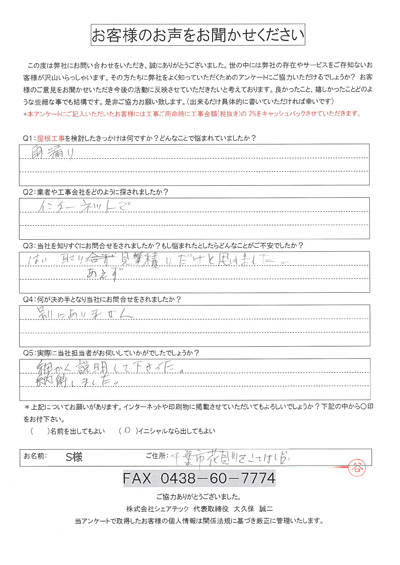 お客様のお声をお聞かせください
この度は弊社にお問い合わせをいただき、誠にありがとうございました。世の中には弊社の存在やサービスをご存知ないお
客様が沢山いらっしゃいます。その方たちに弊社をよく知っていただくためのアンケートにご協力いただけるでしょうか？ お客
様のご意見をお聞かせいただき今後の活動に反映させていただきたいと考えております。良かったこと、嬉しかったことどのよ
うな些細な事でも結構です。是非ご協力お願い致します。（出来るだけ具体的に書いていただければ幸いです）
*本アンケートにご記入いただいたお客様には工事ご用命時に工事金額(税抜き)の2%をキャッシュバックさせていただきます。
Q1:屋根工事を検討したきっかけは何ですか？どんなことで悩まれていましたか？
雨漏り
Q2:業者や工事会社をどのように探されましたか？
インターネットで
Q3:当社を知りすぐにお問合せをされましたか？もし悩まれたとしたらどんなことがご不安でしたか？
はい 取り 見積りだけと思いました。
あえず
Q4:何が決め手となり当社にお問合せをされましたか？
別にありません
Q5:実際に当社担当者がお伺いしていかがでしたでしょうか？
細かく説明して下さった。
納得しました。
*上記についてお願いがあります。インターネットや印刷物に掲載させていただいてもよろしいでしょうか？下記の中から〇印
をお付下さい。
( )名前を出してもよい (〇)イニシャルなら出してもよい
お名前: S様 ご住所: 千葉市花見川区こてはし台
谷
FAX 0438-60-7774
ご協力ありがとうございました。
株式会社シェアテック 代表取締役 大久保 誠二
当アンケートで取得したお客様の個人情報は関係法規に基づき厳正に管理いたします。